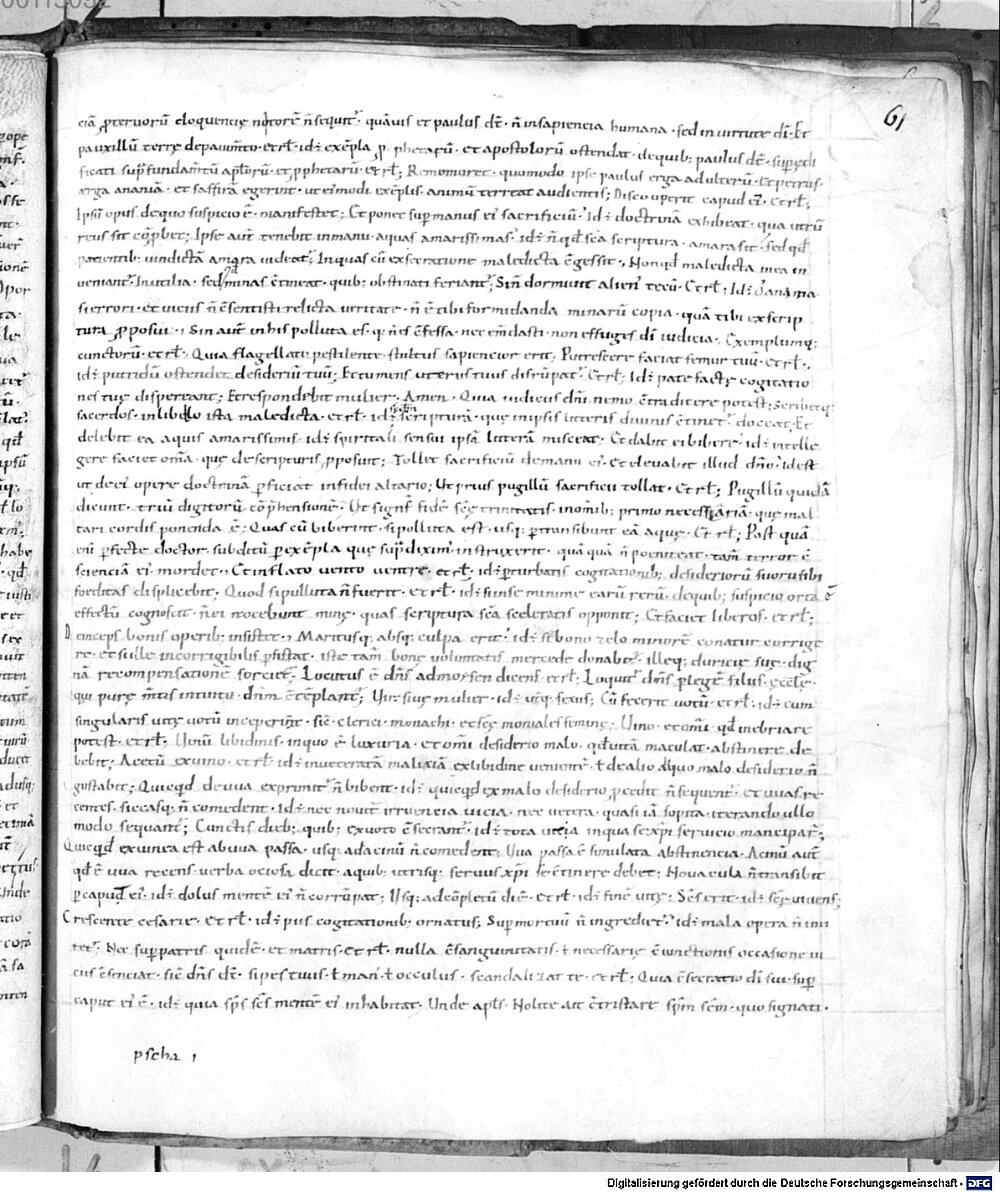 61
ciã ꝓteruorũ eloquencię nitorẽ ñ sequit᷑ · quãuis et paulus dc̃ · ñ insapiencia humana · sed in uirtute dĩ · Et
pauxillũ terrę depauim̃to · et rł · id᷑ exẽpla ꝓphetarũ · et apostolorũ ostendat · de quib; paulus dc̃ · sup ędi
ficati sup fundam̃tũ apłorũ · et ꝓphetarũ · et rł; Rememoret · quomodo ipse paulus erga adulterũ · et petrus ·
erga ananiã · et saffirã egerint · ut ei᷑modi exẽplis · animũ terreat audientis; Discooperit capud ei᷑ · et rł;
Ipsũ opus de quo suspicio ẽ · manifestet; Et ponet sup manus ei᷑ sacrificiũ · id᷑ doctrinã exhibeat · qua utrũ
reus sit cõprobet; Ipse aut̃ tenebit in manu · aquas amarissimas · id᷑ ñ qđ sc̃a scriptura · amara sit · sed qđ
pacientib; uindictã amara uideat᷑; In quas cũ execratione maledicta cõgessit · Non qđ maledicta mea in
ueniant᷑ inutilia · sed minas cõtineat · quib; obstinati feriant᷑; Si ñ dormiuit alien᷑ tecũ · Et rł; Id᷑
si errori · et uiciis ñ cõsentisti relicta ueritate · ñ ẽ tibi formidanda minarũ copia · quã tibi ex scrip
tura ꝓposui · Sin aut̃ in his polluta es · et ñ es cõfessa · nec em̃dasti · non effuges dĩ iudicia · Exemplumq;
cunctorũ · et rł · Quia flagellato pestilente · stultus sapiencior erit; Putrescere faciat femur tuũ · et rł ·
id᷑ putridũ ostendet desideriũ tuũ; Et tumens uterus tuus disrũpat᷑ · et rł · Id᷑ patefactę cogitatio
nes tuę dispereant; Et respondebit mulier · Amen · Quia iudiciis dñi nemo cõtradicere potest; Scribetq;
sacerdos · in libello ista maledicta · et rł · id᷑ scripturã · quę in ipsis litteris diuinis cõtinet᷑ · doceat; Et
delebit ea aquis amarissimis · id᷑ spiritali sensui ipsã litterã misceat; Et dabit ei bibere · id᷑ intelle
gere faciet om̃ia · quę de scripturis ꝓposuit; Tollet sacrificiũ de manu ei᷑ · Et eleuabit illud dño · idest
ut de ei᷑ opere doctrinã ꝑficiat in fidei altario; Ut prius pugillũ sacrificii tollat · et rł; Pugillũ quidã
dicunt · triũ digitorũ cõp̃hensionẽ · Ut signet᷑ fidẽ sc̃ę trinitatis in omib; primo necessariã · quę in al
tari cordis ponenda ẽ; Quas cũ biberit · si polluta est · usq; ꝑtransibunt eã aquę · et rł; Postquã
eni᷑ ꝑfecte doctor · subditũ ꝑ exẽpla quę sup dixim᷑ instruxerit · quãquã ñ poeniteat · tam̃ terror cõ
scienciã ei᷑ mordet · Et inflato uento uentre · et rł · id᷑ ꝑturbatis cogitationib; desideriorũ suorũ sibi
foeditas displicebit · Quod si polluta ñ fuerit · et rł · id᷑ si in se minime earũ rerũ · de quib; suspicio orta ẽ
effectũ cognoscit · ñ ei nocebunt minę · quas scriptura sc̃a sceleratis opponit; Et faciet liberos · et rł;
Deinceps bonis operib; insistet · Maritusq; absq; culpa erit · id᷑ si bono zelo minorẽ conatur corrige
re · et si ille incorrigibilis ꝑsistat · iste tam̃ bonę uoluntatis mercede donabit᷑ · illeq; duricię suę dig
nã recompensationẽ sorciet᷑; Locutus ẽ dñs ad moysen dicens · et rł; Loquit᷑ dñs ꝑ legem filiis ęcclesię ·
qui purę m̃tis intuitu dñm cõtẽplant᷑; Uir siue mulier · id᷑ ut̃q; sexus; Cũ fecerit uotũ · et rł · id᷑ cum
singularis uitę uotũ inceperint · sic̃ clerici monachi · et sc̃ę moniales feminę; Uino · et om̃i qđ inebriare
potest · et rł; Uinũ libidinis · in quo ẽ luxuria · et om̃i desiderio malo · qđ uitã maculat · abstinere de
bebit; Acetũ ex uino · et rł · id᷑ inueteratã maliciã ex libidine uenientẽ · ł de alio aliquo malo desiderio ñ
gustabit; Quicqđ de uua exprimit᷑ ñ bibent · id᷑ quicqđ ex malo desiderio ꝓcedit ñ sequent᷑ · et uuas re
centes · siccasq; ñ comedent · Id᷑ nec nouit᷑ irruencia uicia · nec uetera · quasi iã sopita · iterando ullo
modo sequant᷑; Cunctis dieb; quib; ex uoto cõsecrant᷑ · id᷑ tota uita in qua se xp̃i seruicio mancipar̃;
Quicqđ ex uinea est ab uua passa · usq; ad acinũ ñ comedent; Uua passa ẽ simulata abstinencia · Acinũ aut̃
qđ ẽ uua recens · uerba ociosa dicit · a quib; utrisq; seruus xp̃i se cõtinere debet; Nouacula ñ transibit
ꝑ capud ei᷑ · id᷑ dolus mentẽ ei᷑ ñ corrũpat; Usq; ad cõpletũ diẽ · et rł · id᷑ finẽ uitę; Sc̃s erit · id᷑ sc̃ę uiuens;
Crescente cesarie · et rł · id᷑ piis cogitationib; ornatus; Sup mortuũ ñ ingrediet᷑ · id᷑ mala opera ñ imi
tet᷑ · Nec sup patris quidẽ · et matris · et rł · nulla cõsanguinitatis · ł necessarię cõiunctionis occasione ui
ciis cõsenciat · sic̃ dñs dc̃ · si pes tuus · ł man᷑ · ł oculus · scandalizat te · et rł · Quia cõsecratio dĩ sui sup
caput ei᷑ ẽ · id᷑ quia sp̃s sc̃s mentẽ ei᷑ inhabitat · Unde apłs · Nolite ait cõtristare sp̃m sc̃m · quo signati ·
Digitalisierung gefördert durch die Deutsche Forschungsgemeinschaft - DFG